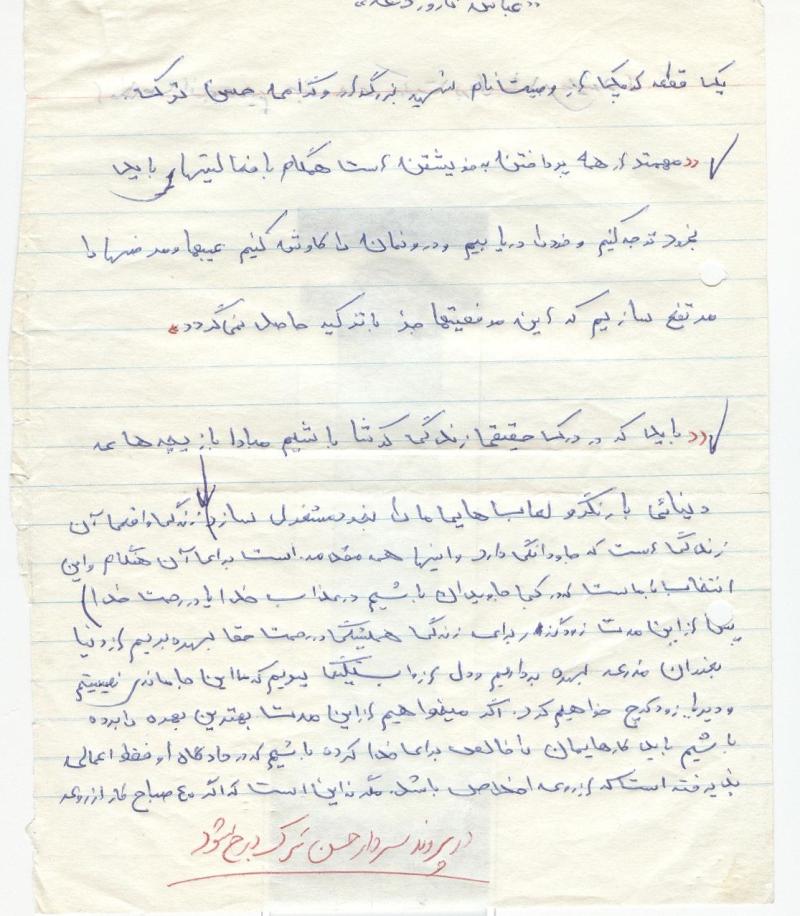 یک قطعه کوچک از وصیت نام شهید بزرگوار و گرامی حسن ترک
«مهمتر از همه پرداختن به خویشتن است همگام با فعالیتهایی باید
بخود توجه کنیم و خود را دریابیم و درونمان را کاوش کنیم عیبها و مرضها را
مرتفع سازیم که این موفقیتها جز با تزکیه حاصل نمیگردد»
«باید که در درک حقیقی زندگی کوشا باشیم مبادا بازیچه های
دنیائی با رنگ و لعابهایی ما را بخود مشغول سازد زندگی واقعی آن
زندگی است که جاودانگی دارد و اینها همه مقدمه است برای آن هنگام و این
انتخاب با ماست که در کجا جاویدان باشیم در عذاب خدا یا در رحمت خدا)
پس از این مدت زودگذر برای زندگی همیشگی در رحمت حق بهره بریم از دنیا
بعنوان مزرعه بهره برداریم و دل از وابستگیها بشوییم که ما اینجا ماندنی نیستیم
و دیر یا زود کوچ خواهیم کرد. اگر میخواهیم از این مدت بهترین بهره را برده
باشیم باید کارهایمان را خالص برای خدا کرده باشیم که در درگاه او فقط اعمالی
پذیرفته است که از روی اخلاص باشد. مگر نه این است که اگر ۴۰ صباح کار از روی
در پرونده سردار حسن ترک درج شود